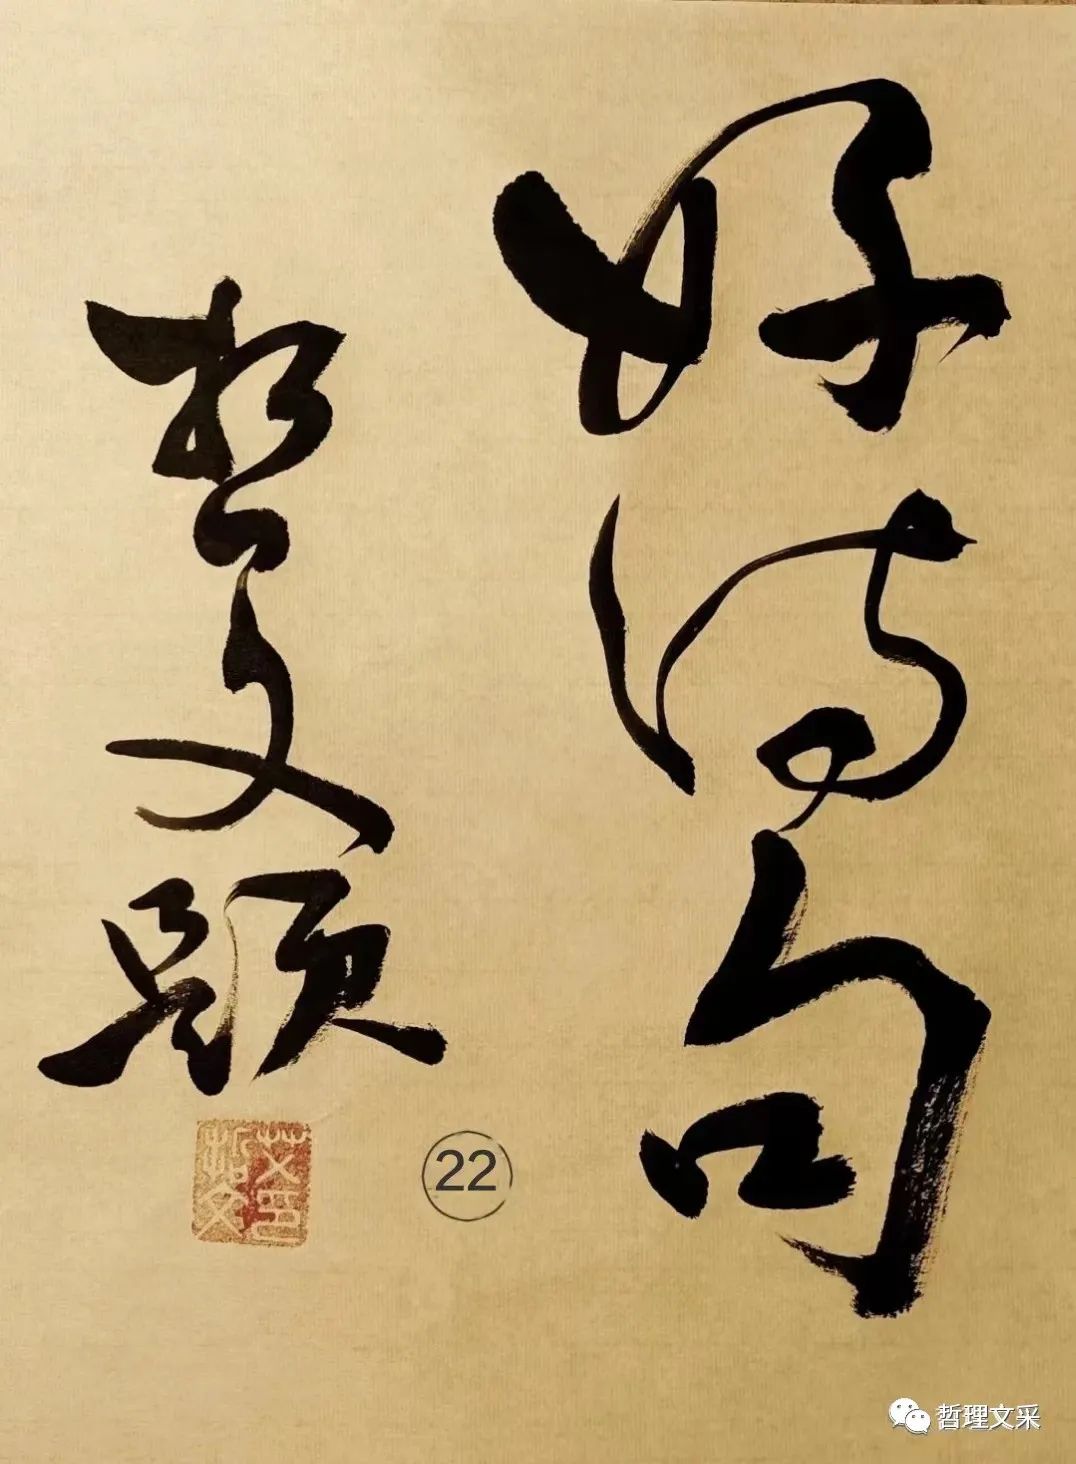 好诗句
哲文题
22
哲理文采